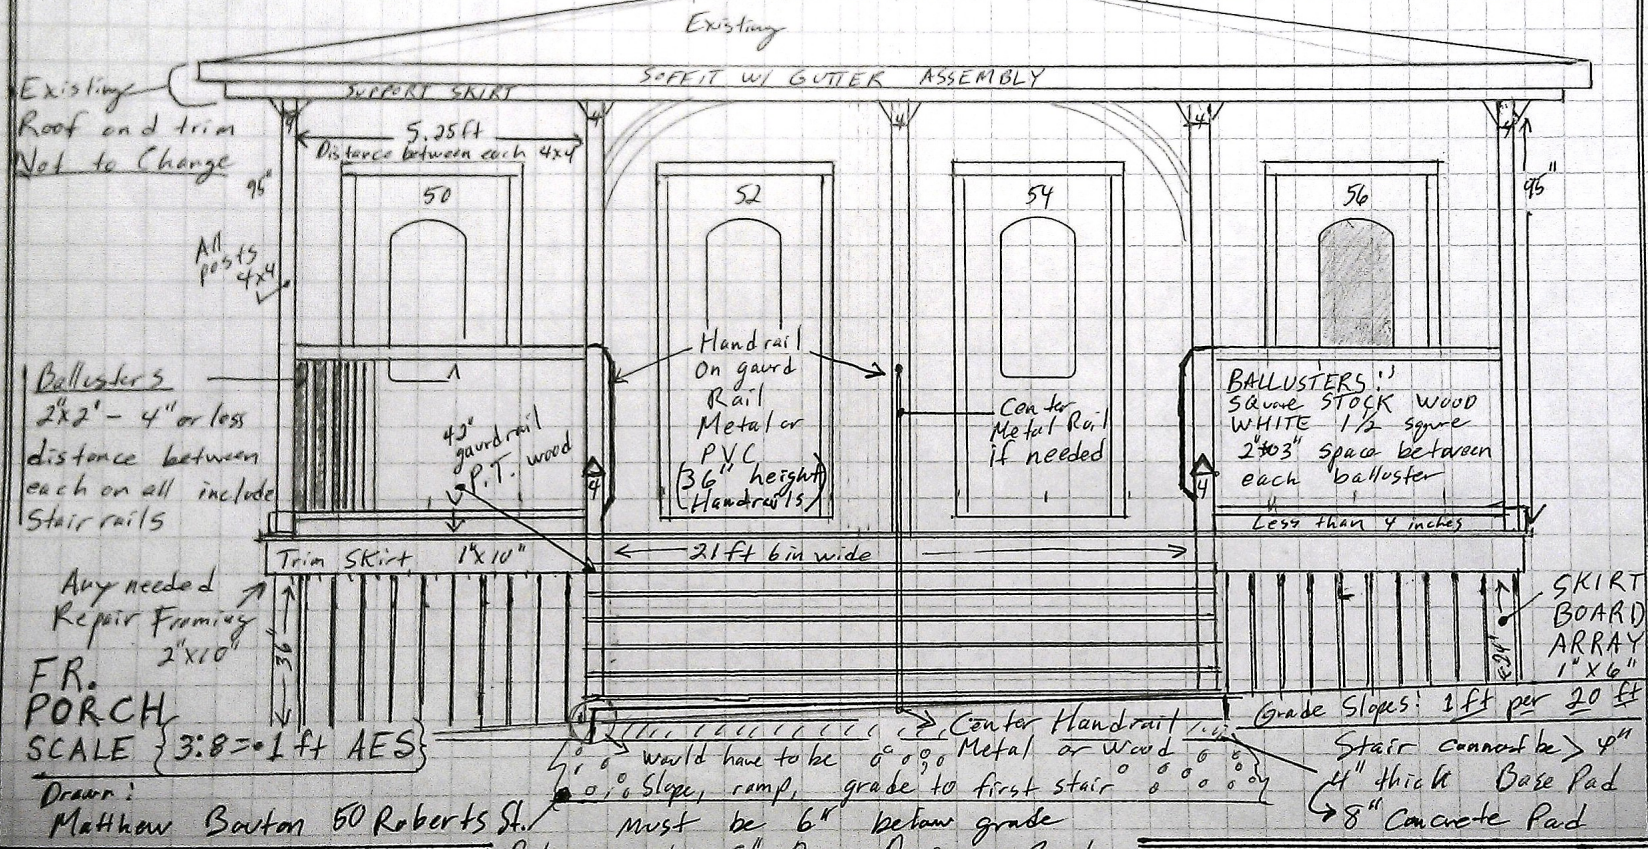 Existing
SOFFIT W/ GUTTER ASSEMBLY
Existing
Roof and trim
Not to Change
SUPPORT SKIRT
4
4
4
4
4
5.25 ft
Distance between each 4x4
95"
95"
50
52
54
56
All
posts
4x4
Ballusters
2"x2" - 4" or less
distance between
each on all include
Stair rails
42"
gaurdrail
P.T. wood
Handrail
On gaurd
Rail
Metal or
PVC
(36" height
Handrails)
Center
Metal Rail
if needed
BALLUSTERS:
Square STOCK WOOD
WHITE 1 1/2 square
2" to 3" space between
each balluster
Less than 4 inches
4
4
Trim Skirt 1"x10"
21 ft 6 in wide
Any needed
Repair Framing
2"x10"
36"
24"
SKIRT
BOARD
ARRAY
1" X 6"
FR.
PORCH
SCALE {3:8=.1 ft AES}
Grade Slopes: 1 ft per 20 ft
Center Handrail
Metal or Wood
would have to be
Slope, ramp, grade to first stair
must be 6" below grade
Stair cannot be > 4"
4" thick Base Pad
8" Concrete Pad
Drawn:
Matthew Bouton 50 Roberts St.